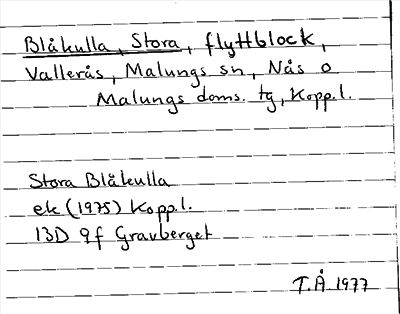 Blåkulla, Stora, flyttblock,
Vallerås, Malungs sn, Nås o
Malungs doms. tg, Kopp.l.
Stora Blåkulla
ek (1975) Kopp.l.
13D 9f Gravberget
T.Å 1977